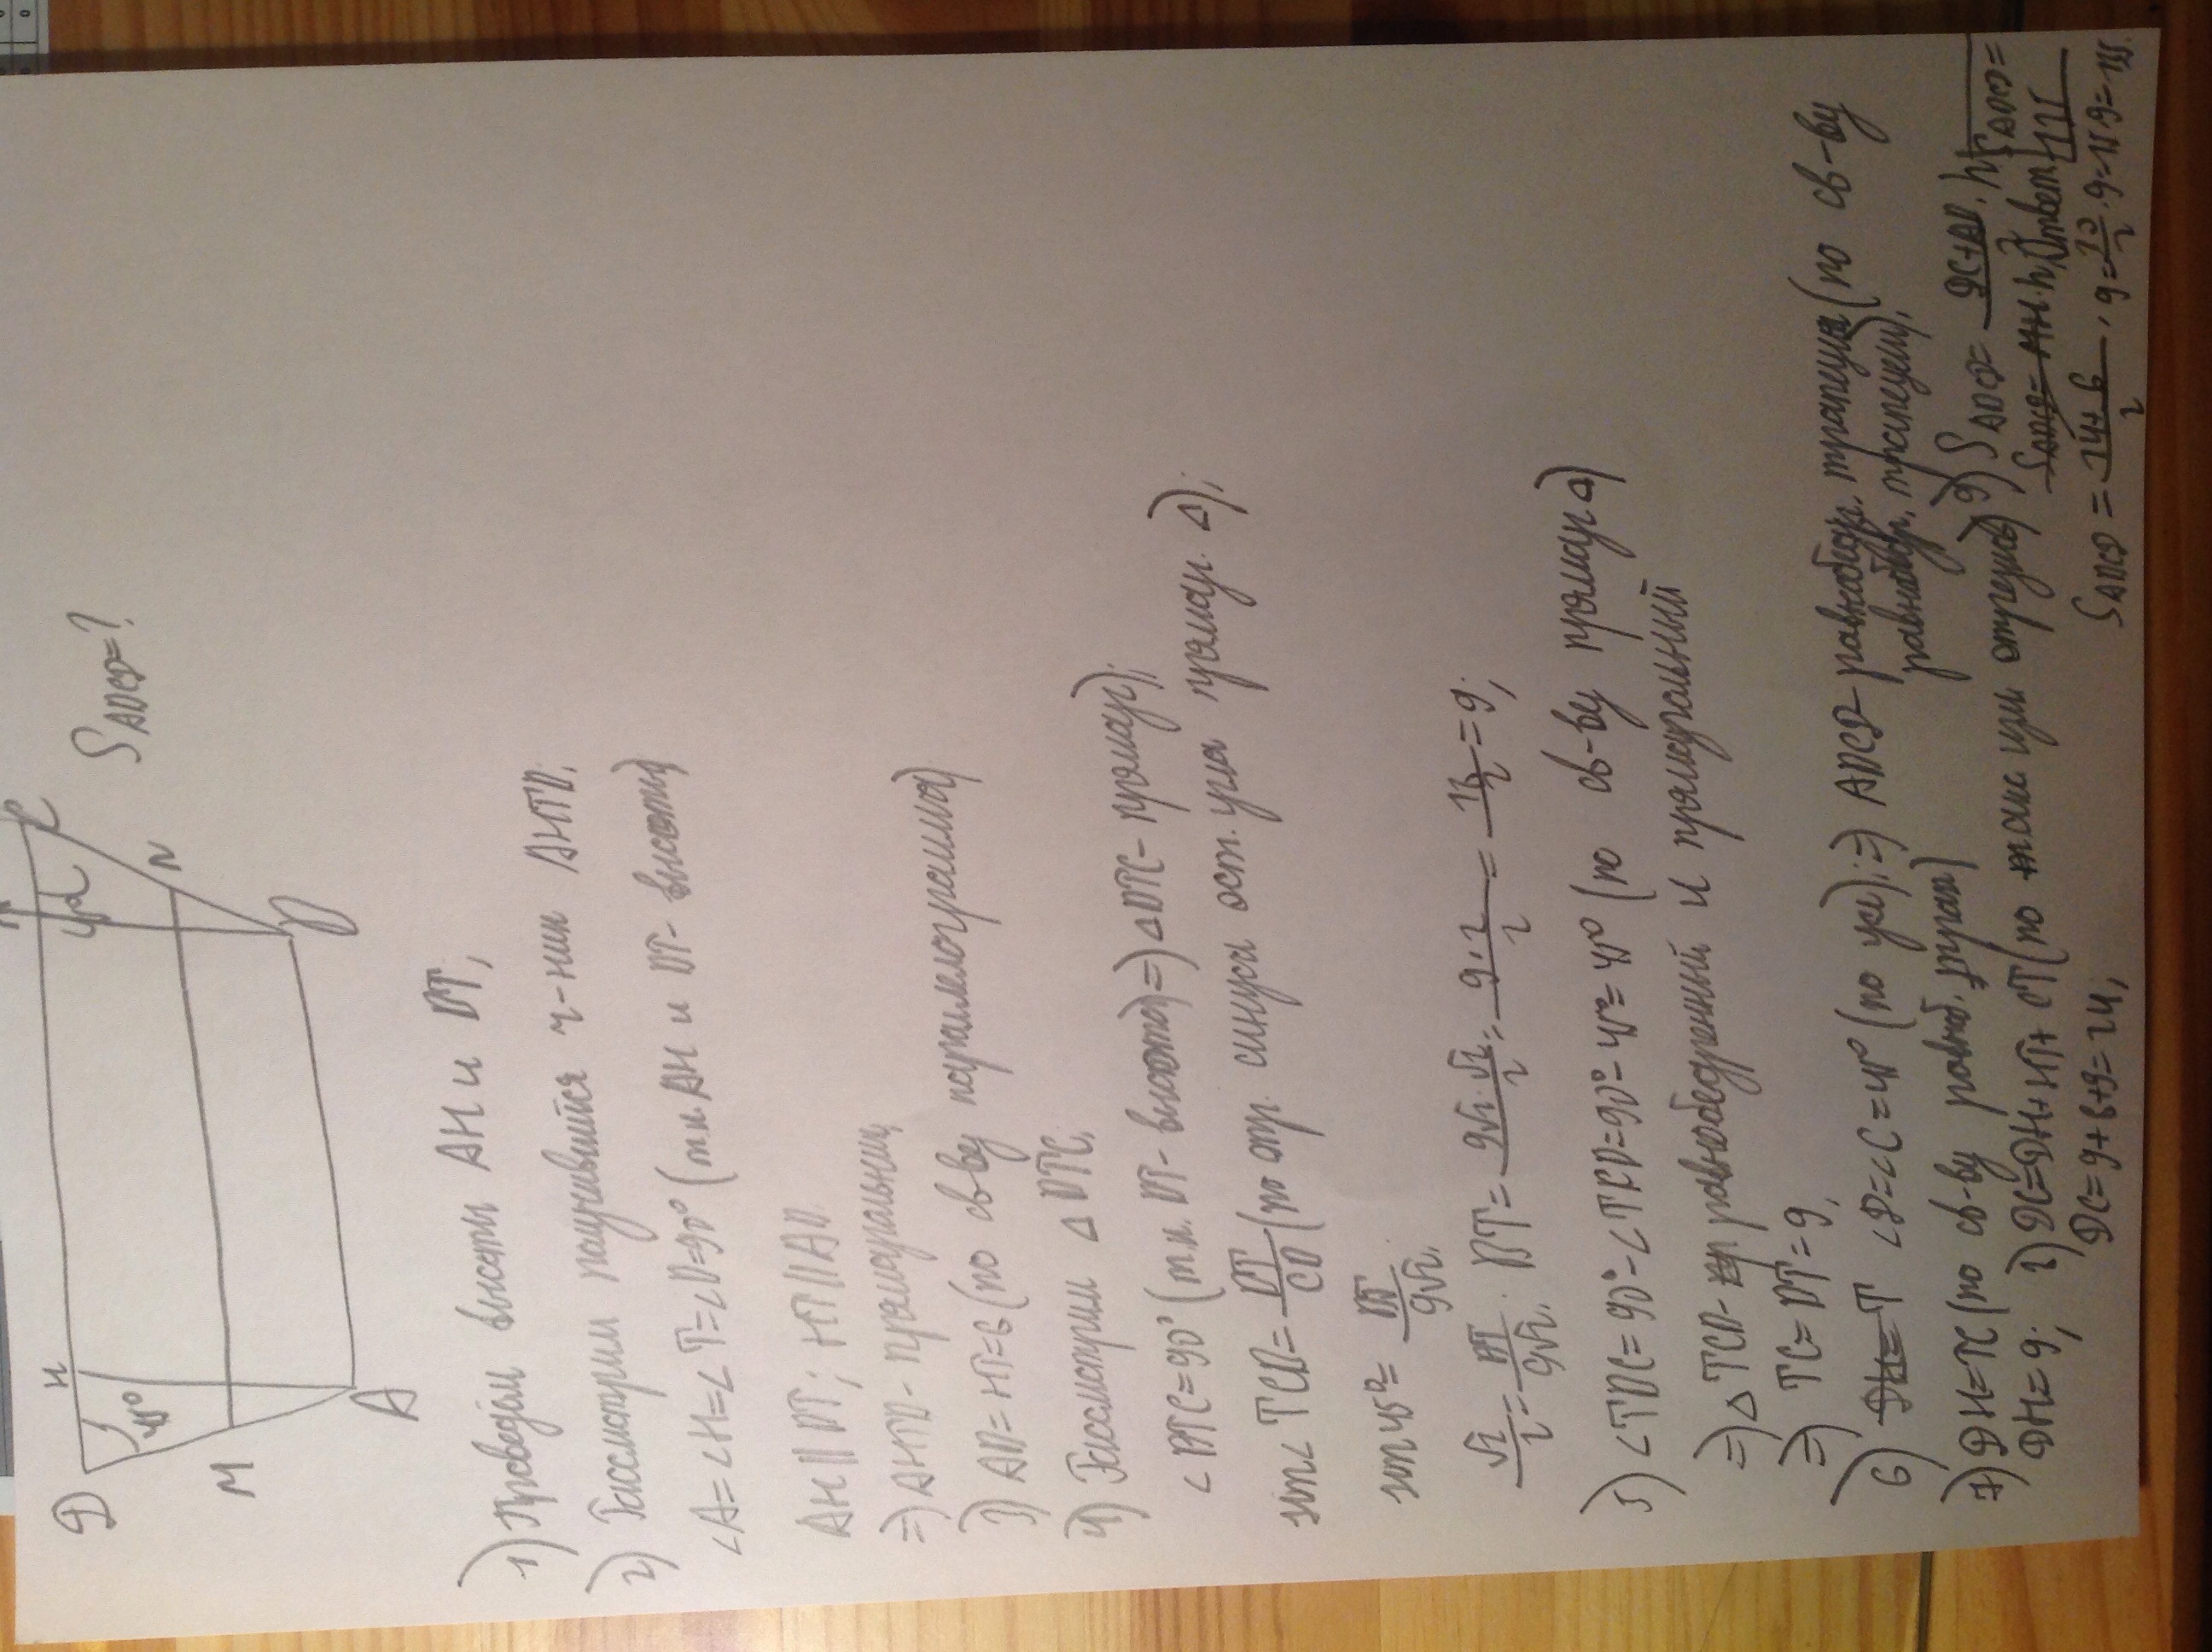 Д
H
C
45°
45°
M
N
A
B
SАВСД=?
1) Проведём высоты AH и BT;
2) Рассмотрим получившийся ч-ник AHTB.
∠A=∠H=∠T=∠B=90° (т.к. AH и BT- высоты)
AH||BT; HT||AB.
=) AHTB- прямоугольник,
3) AB=HT=6 (по св-ву параллелограмма)
4) Рассмотрим △ BTC.
∠BTC=90° (т.к. BT- высота) =) △BTC- прямоуг);
sin∠TCB= BT/CB (по опр. синуса ост. угла прямоуг. △);
sin45°= BT/9√2.
√2/2 = BT/9√2. BT= 9√2·√2/2 = 9·2/2 = 18/2 =9;
5) ∠TBC=90°-∠TCB=90°-45°=45° (по св-ву прямоуг △)
=) △ TCB- равнобедренный и прямоугольный
=) TC=BT=9,
6) ∠Д=∠C=45° (по усл); =) АВСД- равнобедр. трапеция (по св-ву
равнобедр. трапеции),
7) ДH=TC (по св-ву равноб. трап)
ДH=9;
8) ДC=ДH+HT+CT (по акс изм отрезков)
ДC=9+6+9=24;
9) SАВСД= ДC+AB/2 · h;
SАВСД= 24+6/2 · 9= 30/2 · 9=15·9=135.
Ответ: SАВСД=
135